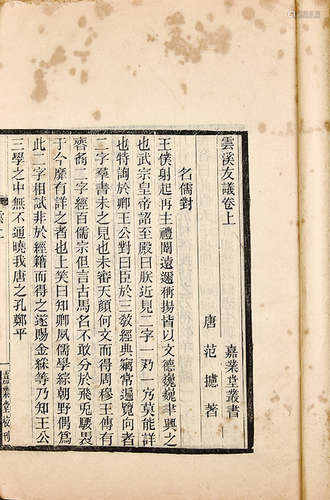 雲溪友議卷上
嘉業堂叢書
唐 范攄 著
名儒對
王僕射起再主禮闈遠邇稱揚皆以文德巍巍聿興之
也武宗皇帝詔至殿曰朕近見二字一
一方莫能詳
也特詢於卿王公對曰臣於三教經典竊常遍覽向者
二字羣書未之見也未審天顏何文而得周穆王傳有
齊裔二字經百儒宗但言古馬名不敢分於飛兔騕褭
于今靡有詳之者也上笑曰知卿夙儒學綜朝野偶為
此二字相試非於經籍而得之遂賜金綵等乃知王公
三學之中無不通曉我唐之孔鄭乎